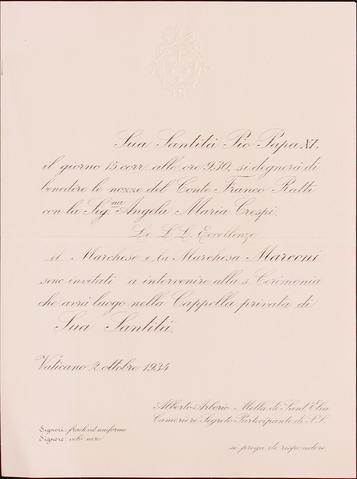 Sua Santità Pio Papa XI.
il giorno 15 corr. alle ore 9.30, si degnerà di
benedire le nozze del Conte Franco Ratti
con la Sig.na Angela Maria Crespi.
Le L.L. Eccellenze
il Marchese e la Marchesa Marconi
sono invitati a intervenire alla s. Cerimonia
che avrà luogo nella Cappella privata di
Sua Santità.
Vaticano 2 ottobre 1934
Alberto Arborio Mella di Sant'Elia
Cameriere Segreto Partecipante di S.S.
Signori: frack od uniforme
Signore: velo nero
si prega di rispondere